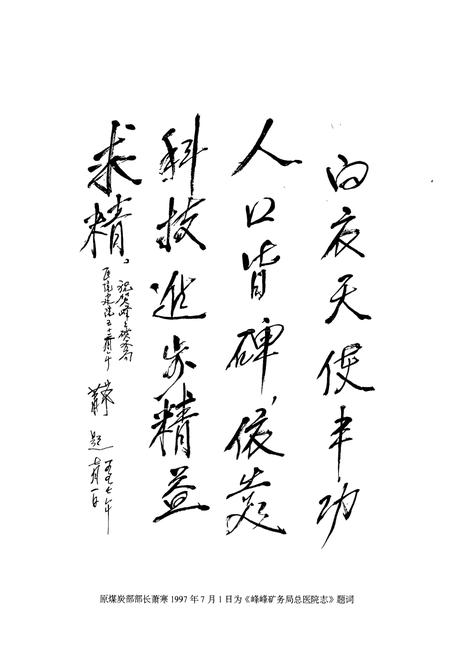 白衣天使丰功
人口皆碑，依靠
科技進步精益
求精。
祝贺峰峰矿务局
医院建院五十周年
萧寒 题
一九九七年
七月一日
原煤炭部部长萧寒 1997 年 7 月 1 日为《峰峰矿务局总医院志》题词